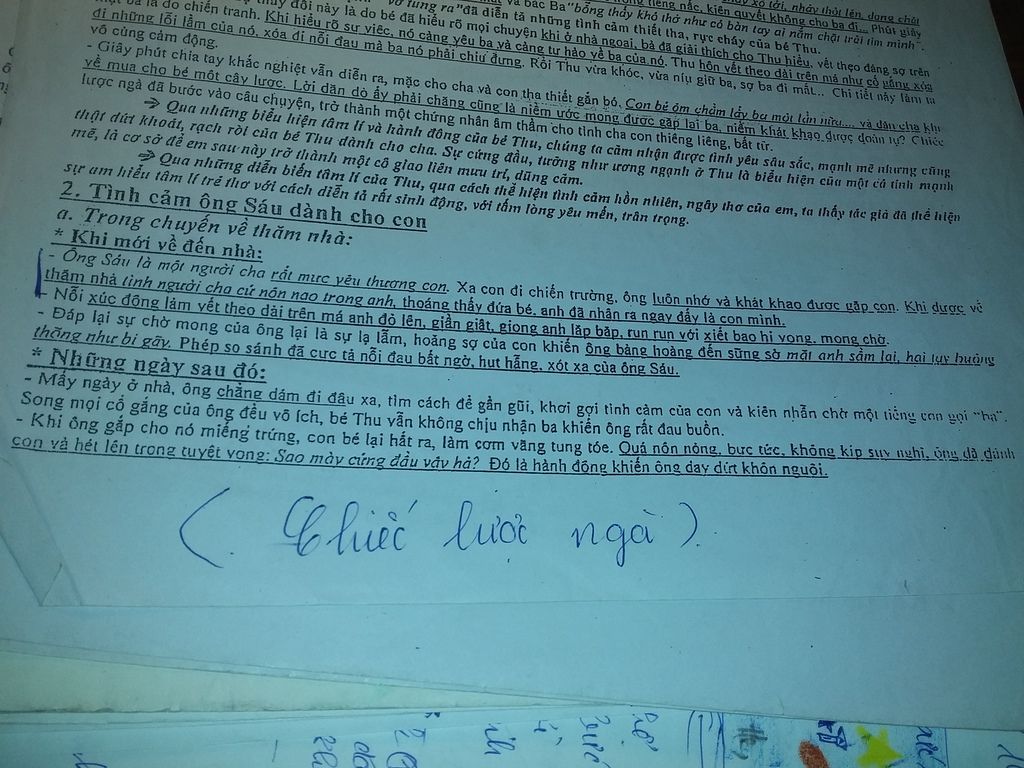 xô tới, nhảy thót lên, dang chặt
tiếng nấc, kiên quyết không cho ba đi... Phút giây
và bác Ba "bỗng thấy khó thở như có bàn tay ai nắm chặt trái tim mình".
đổi này là do bé đã hiểu rõ mọi chuyện khi ở nhà ngoại, bà đã giải thích cho Thu hiểu, vết thẹo đáng sợ trên
là do chiến tranh. Khi hiểu rõ sự việc, nó càng yêu ba và càng tự hào về ba của nó. Thu hôn vết theo dài trên má như cố gắng xóa
đi những lỗi lầm của nó, xóa đi nỗi đau mà ba nó phải chịu đựng. Rồi Thu vừa khóc, vừa níu giữ ba, sợ ba đi mất... Chi tiết này làm ta
vô cùng cảm động.
- Giây phút chia tay khắc nghiệt vẫn diễn ra, mặc cho cha và con tha thiết gắn bó. Con bé ôm chầm lấy ba một lần nữa... và dặn cha khi
về mua cho bé một cây lược. Lời dặn dò ấy phải chăng cũng là niềm ước mong được gặp lại ba, niềm khát khao được đoàn tụ? Chiếc
lược ngà đã bước vào câu chuyện, trở thành một chứng nhân âm thầm cho tình cha con thiêng liêng, bất tử.
➔ Qua những biểu hiện tâm lí và hành động của bé Thu, chúng ta cảm nhận được tình yêu sâu sắc, mạnh mẽ nhưng cũng
thật dứt khoát, rạch ròi của bé Thu dành cho cha. Sự cứng đầu, tưởng như ương ngạnh ở Thu là biểu hiện của một cá tính mạnh
mẽ, là cơ sở để em sau này trở thành một cô giao liên mưu trí, dũng cảm.
➔ Qua những diễn biến tâm lí của Thu, qua cách thể hiện tình cảm hồn nhiên, ngây thơ của em, ta thấy tác giả đã thể hiện
sự am hiểu tâm lí trẻ thơ với cách diễn tả rất sinh động, với tấm lòng yêu mến, trân trọng.
2. Tình cảm ông Sáu dành cho con
a. Trong chuyến về thăm nhà:
* Khi mới về đến nhà:
- Ông Sáu là một người cha rất mực yêu thương con. Xa con đi chiến trường, ông luôn nhớ và khát khao được gặp con. Khi được về
thăm nhà tình người cha cứ nôn nao trong anh, thoáng thấy đứa bé, anh đã nhận ra ngay đấy là con mình.
- Nỗi xúc động làm vết theo dài trên má anh đỏ lên, giần giật, giọng anh lặp bặp, run run với xiết bao hi vọng, mong chờ.
- Đáp lại sự chờ mong của ông lại là sự lạ lẫm, hoảng sợ của con khiến ông bàng hoàng đến sững sờ mặt anh sầm lại, hai tay buông
thõng như bị gãy. Phép so sánh đã cực tả nỗi đau bất ngờ, hụt hẫng, xót xa của ông Sáu.
* Những ngày sau đó:
- Mấy ngày ở nhà, ông chẳng dám đi đâu xa, tìm cách để gần gũi, khơi gợi tình cảm của con và kiên nhẫn chờ một tiếng con gọi "ba".
Song mọi cố gắng của ông đều vô ích, bé Thu vẫn không chịu nhận ba khiến ông rất đau buồn.
- Khi ông gắp cho nó miếng trứng, con bé lại hất ra, làm cơm văng tung tóe. Quá nôn nóng, bực tức, không kịp suy nghĩ, ông đã đánh
con và hét lên trong tuyệt vọng: Sao mày cứng đầu vậy hả? Đó là hành động khiến ông day dứt khôn nguôi.
( Chiếc lược ngà ).